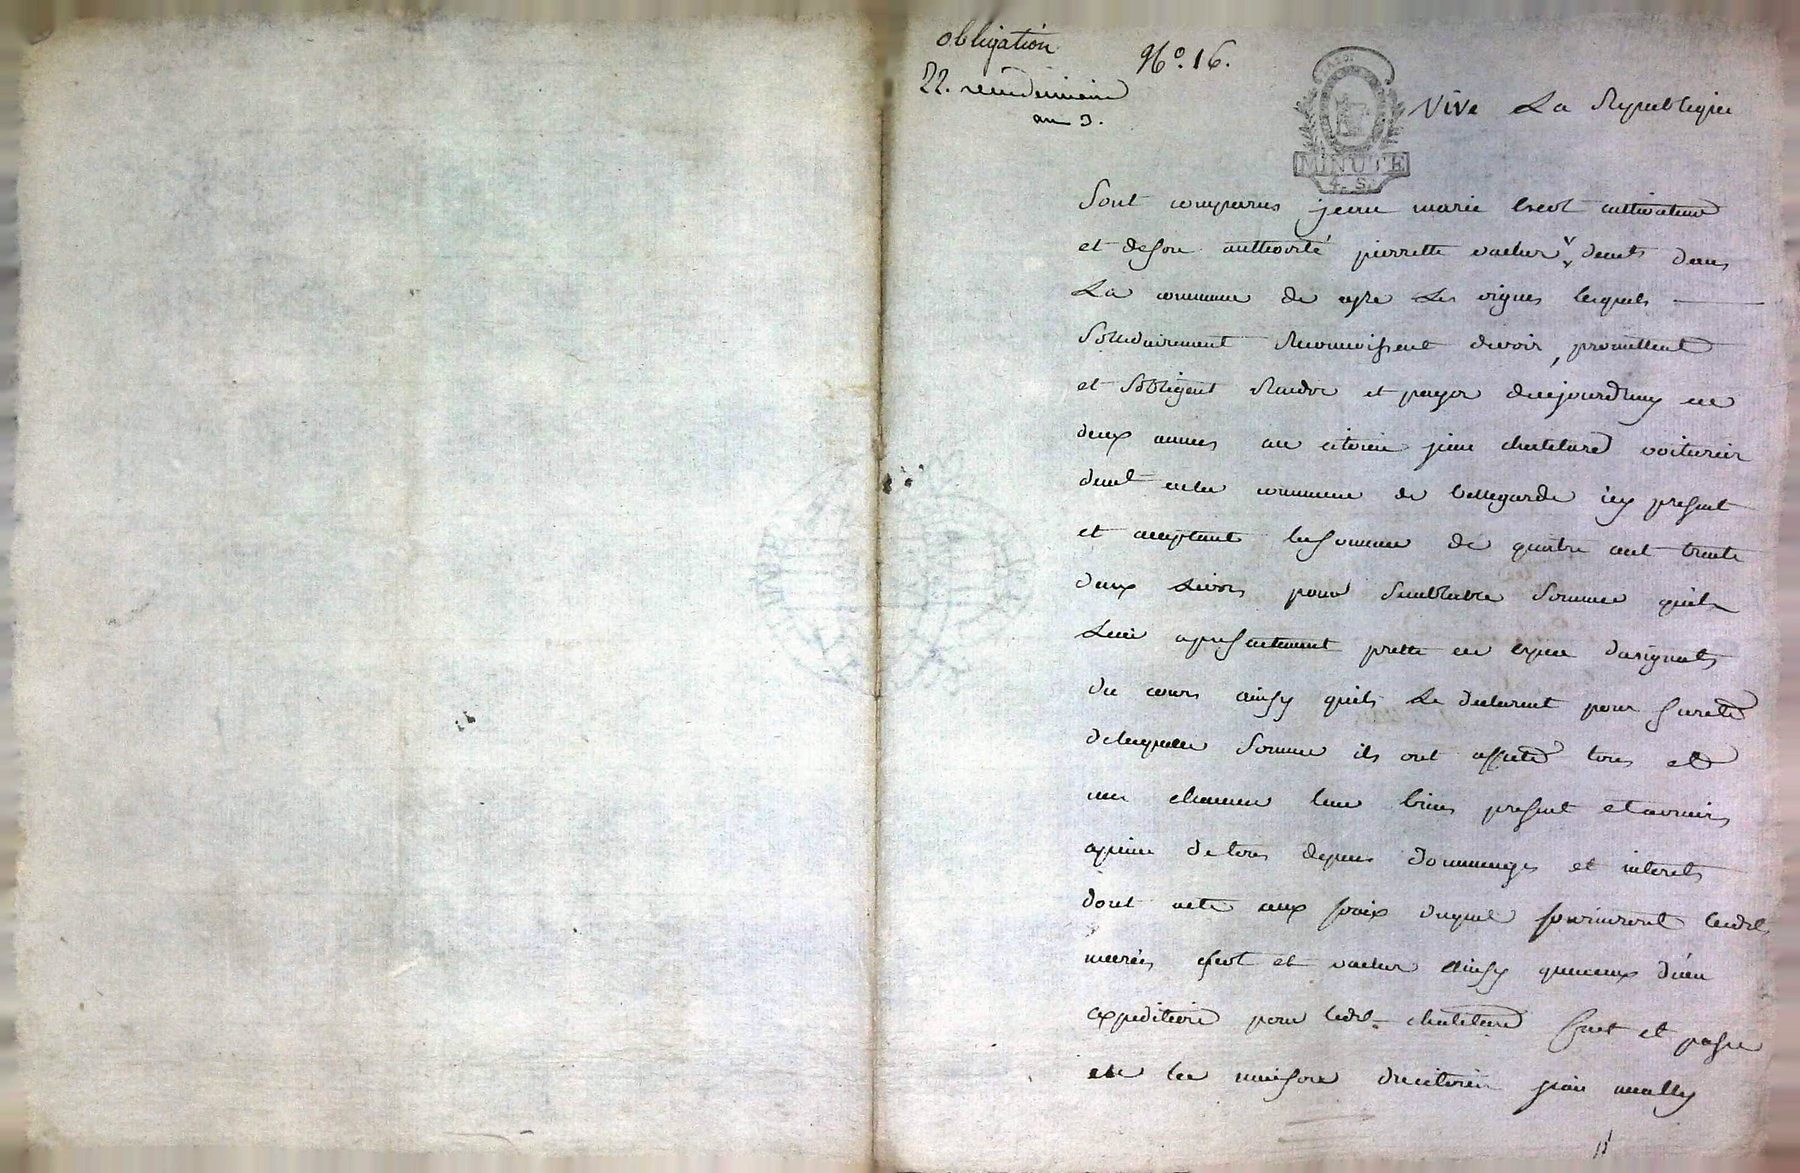 obligation
N°. 16.
22. vendemiaire
an 3.
MINUTE
4. S.
Vive La Republique
Sont comparus jean marie cultivateur
et de son authorité pierrette vacher demts dans
La commune de Les vignes lesquels
Sollidairement Reconnoissent devoir, promettent
et Sobligent Rendre et payer daujourdhuy en
deux annees au citoien jean chatelard voiturier
demt en la commune de bellegarde icy present
et acceptant la Somme de quatre cent trente
deux Livres pour Semblable Somme quil
Leur a presentement pretté en espece dasignats
du cours ainsy quils Le declarent pour Sureté
de laquelle Somme ils ont affecté tous et
un chacun leur biens present et avenirs
a peine de tous depens dommages et interets
dont acte aux fraix duquel fourniront lesdts
mariés et vacher ainsy qua ceux d'une
expedition pour ledt chatelard fait et passé
en la maison du citoien jean